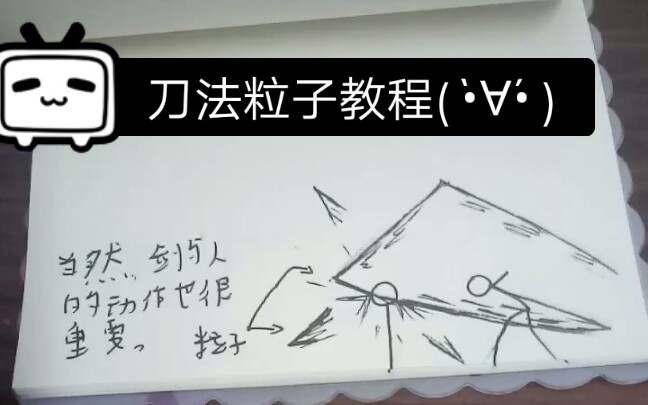 刀法粒子教程(•̀∀•́)
当然,剑与人
的动作也很
重要。
粒子